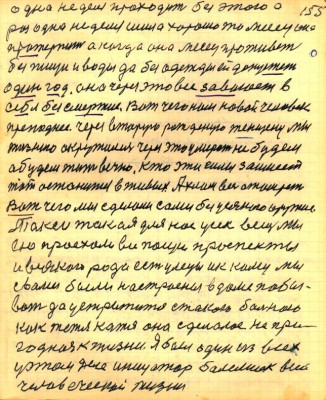 155
одна неделя проходит без этого а
раз одна неделя шла хорошо то месяц она
протерпит а когда она месяц проживет
без пищи и воды да без одежды ей допустит
один год, она через это все завоюет в
себе бессмертие. Вот чего нам новой человек
преподнес через вторую рожденную женщину мы
только окружились через это умерать не будем
а будем жить вечно. Кто эти силы займеет
тот останется в живых А или все отомрет
Вот чего мы сделали сами без всякого оружие
Такси такая для нас уже вещь мы
ею проехали все пощи проспекты
и всякого рода есть улицы и к кому мы
ехали были настроены в доме побы-
вать да устретится с такого больного
как тетя катя она сделалось не при-
годная к жизни Я был один из всех
у этом деле инициатор
человеческой жизни